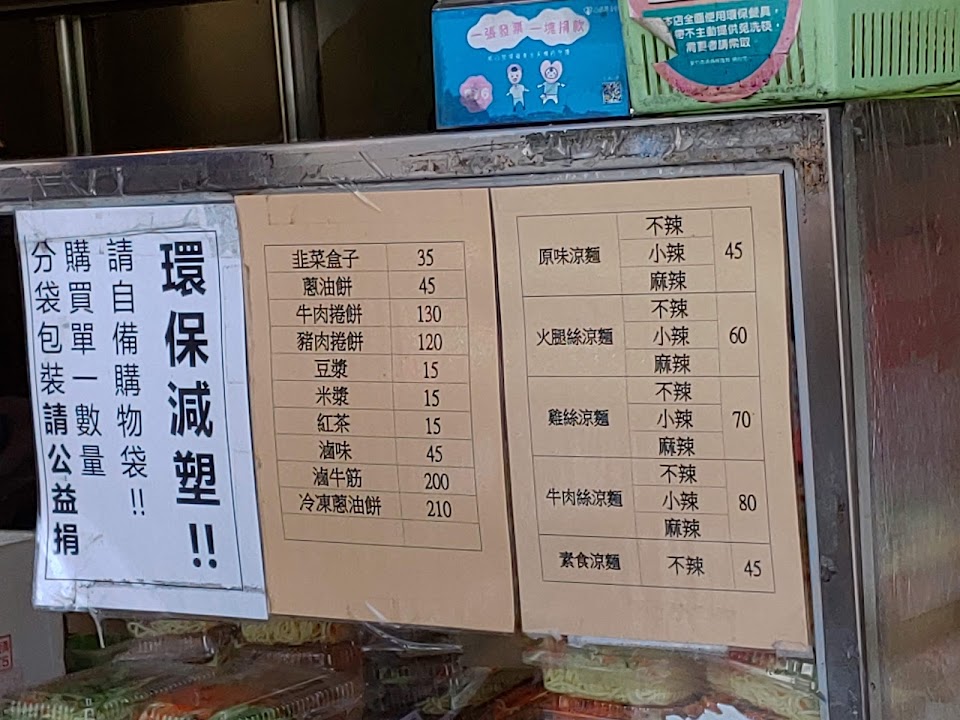 一張發票 一塊捐款
本店全面使用環保餐具,
不主動提供免洗筷
需要者請索取.
環保減塑!!
請自備購物袋!!
購買單一數量
分袋包裝請公益捐
韭菜盒子 35
蔥油餅 45
牛肉捲餅 130
豬肉捲餅 120
豆漿 15
米漿 15
紅茶 15
滷味 45
滷牛筋 200
冷凍蔥油餅 210
不辣
原味涼麵 小辣 45
麻辣
不辣
火腿絲涼麵 小辣 60
麻辣
不辣
雞絲涼麵 小辣 70
麻辣
不辣
牛肉絲涼麵 小辣 80
麻辣
素食涼麵 不辣 45